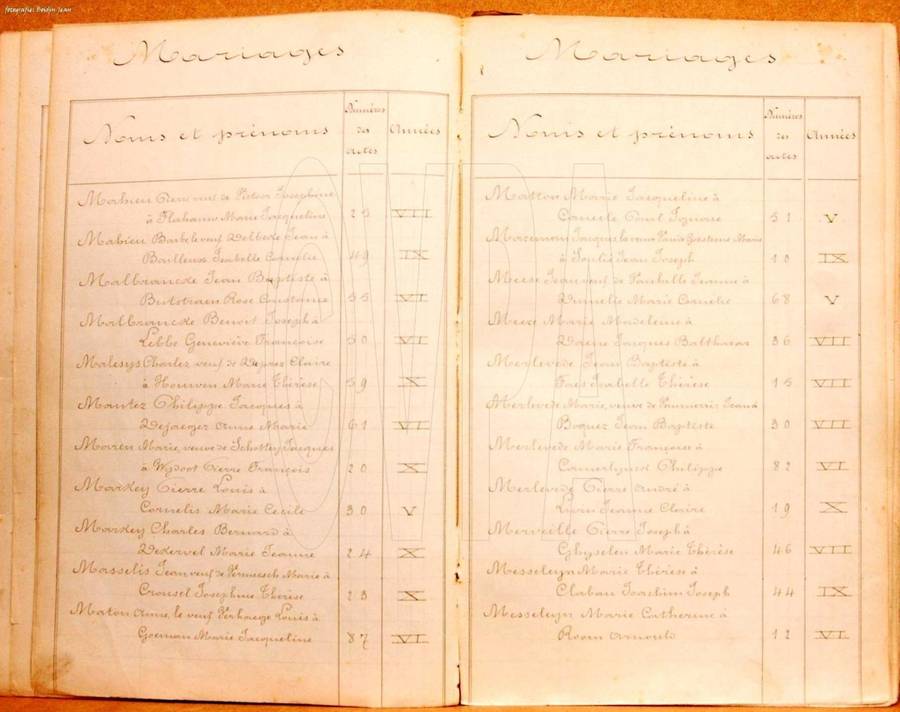 fotografie: Boidjn Jean
Mariages
Noms et prénoms
Numéros
des
actes
Années
Mahieu Pierre veuf de Josephine
à Flahauw Marie Jacqueline 25 VII
Mahieu Barbe le veuf Delbede Jean à
Bailleux Isabelle Cornelie 49 IX
Malbrancke Jean Baptiste à
Butstraen Rose Constance 55 VI
Malbrancke Benoit Joseph à
Lebbe Geneviève Françoise 50 VI
Malesys Charles veuf de Deprez Claire
à Houwen Marie Thérèse 59 X
Mantez Philippe Jacques à
Dejaeger Anne Marie 61 VI
Maren Marie, veuve de Schotley Jacques
à Wydoot Pierre François 20 X
Markey Pierre Louis à
Cornelis Marie Cecile 30 V
Markey Charles Bernard à
Dekervel Marie Jeanne 24 X
Masselis Jean veuf de Vermeesch Marie à
Crousel Josephine Thérèse 28 X
Maton Anne, le veuf Verhaege Louis à
Goeman Marie Jacqueline 87 VI
Mariages
Noms et prénoms
Numéros
des
actes
Années
Matton Marie Jacqueline à
Paul Ignace 51 V
Jacques la veuve Marie
à Jean Joseph 10 IX
Meese Jean veuf de Jeanne à
Marie Cornelie 68 V
Meese Marie Madeleine à
Jacques Balthazar 36 VII
Merlevede Jean Baptiste à
Faes Isabelle Thérèse 15 VII
Merlevede Marie, veuve de Jean à
Boquez Jean Baptiste 30 VII
Merlevede Marie Françoise à
Camerlynck Philippe 82 VI
Merlevede Pierre André à
Jeanne Claire 19 X
Merveille Pierre Joseph à
Ghyselen Marie Thérèse 46 VII
Messeleyn Marie Thérèse à
Clabau Joachim Joseph 44 IX
Messeleyn Marie Catherine à
Room Arnould 12 VI